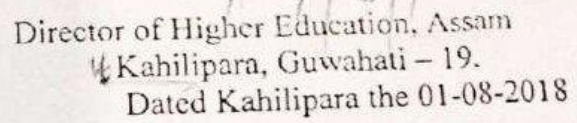 Director of Higher Education, Assam
Kahilipara, Guwahati – 19.
Dated Kahilipara the 01-08-2018